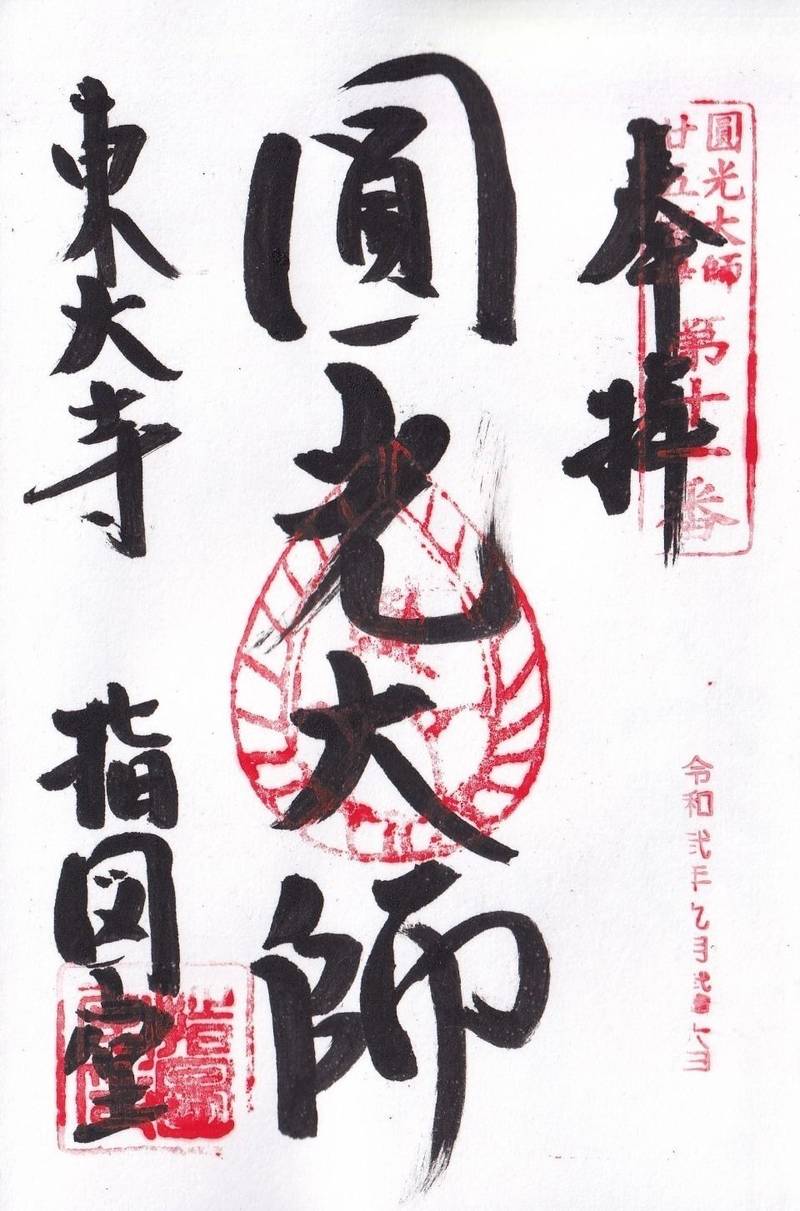 圓光大師
廿五
第十一番
奉拝
令和弐年九月弐 六日
圓光大師
東大寺
指図堂